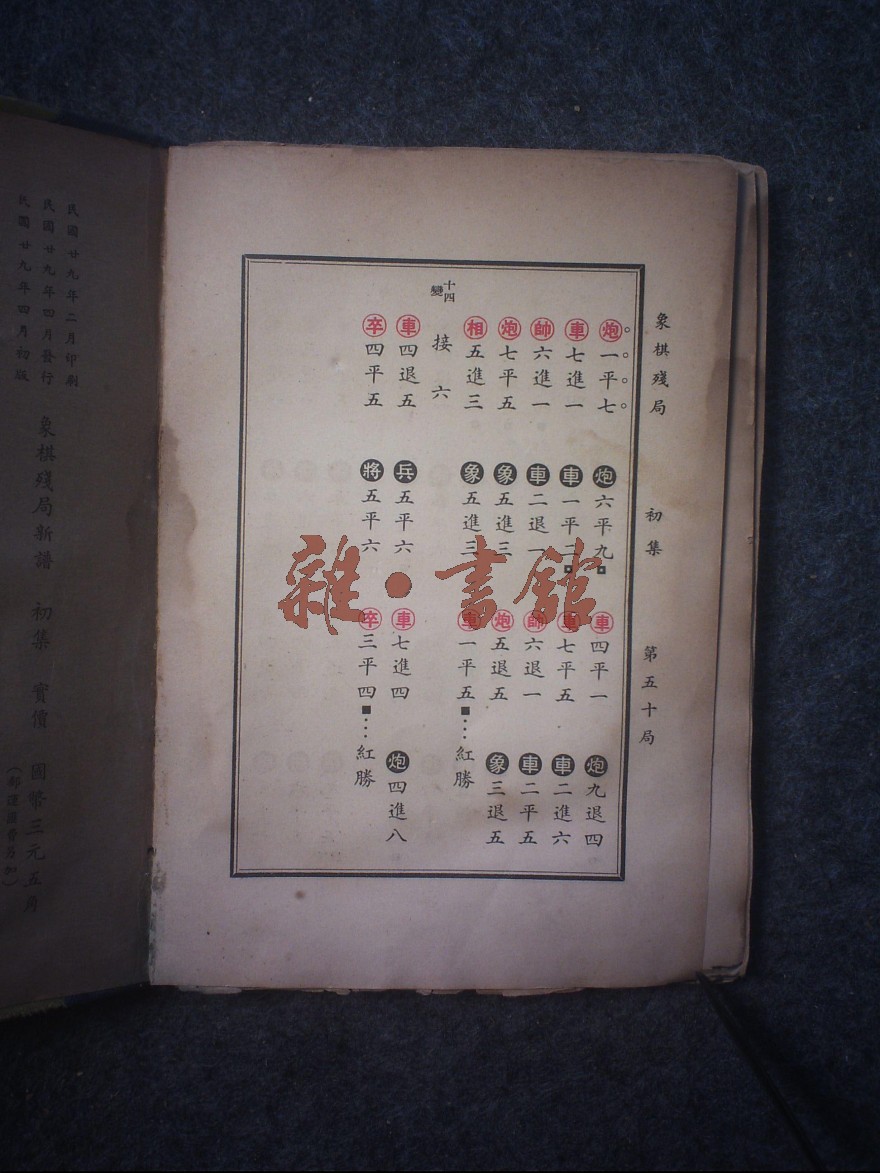 象棋殘局 初集 第五十局
炮一平七 炮六平九 車四平一 炮九退四
車七進一 車一平二 車七平五 車二進六
帥六進一 車二退一 帥六退一 車二平五
炮七平五 象五進三 炮五退五 象三退五
相五進三 象五進三 車一平五■…紅勝
十四變 接六
車四退五 兵五平六 車七進四 炮四進八
卒四平五 將五平六 卒三平四■…紅勝
民國廿九年二月印刷
民國廿九年四月發行
民國廿九年四月初版
象棋殘局新譜 初集 實價 國幣三元五角
雜·書館